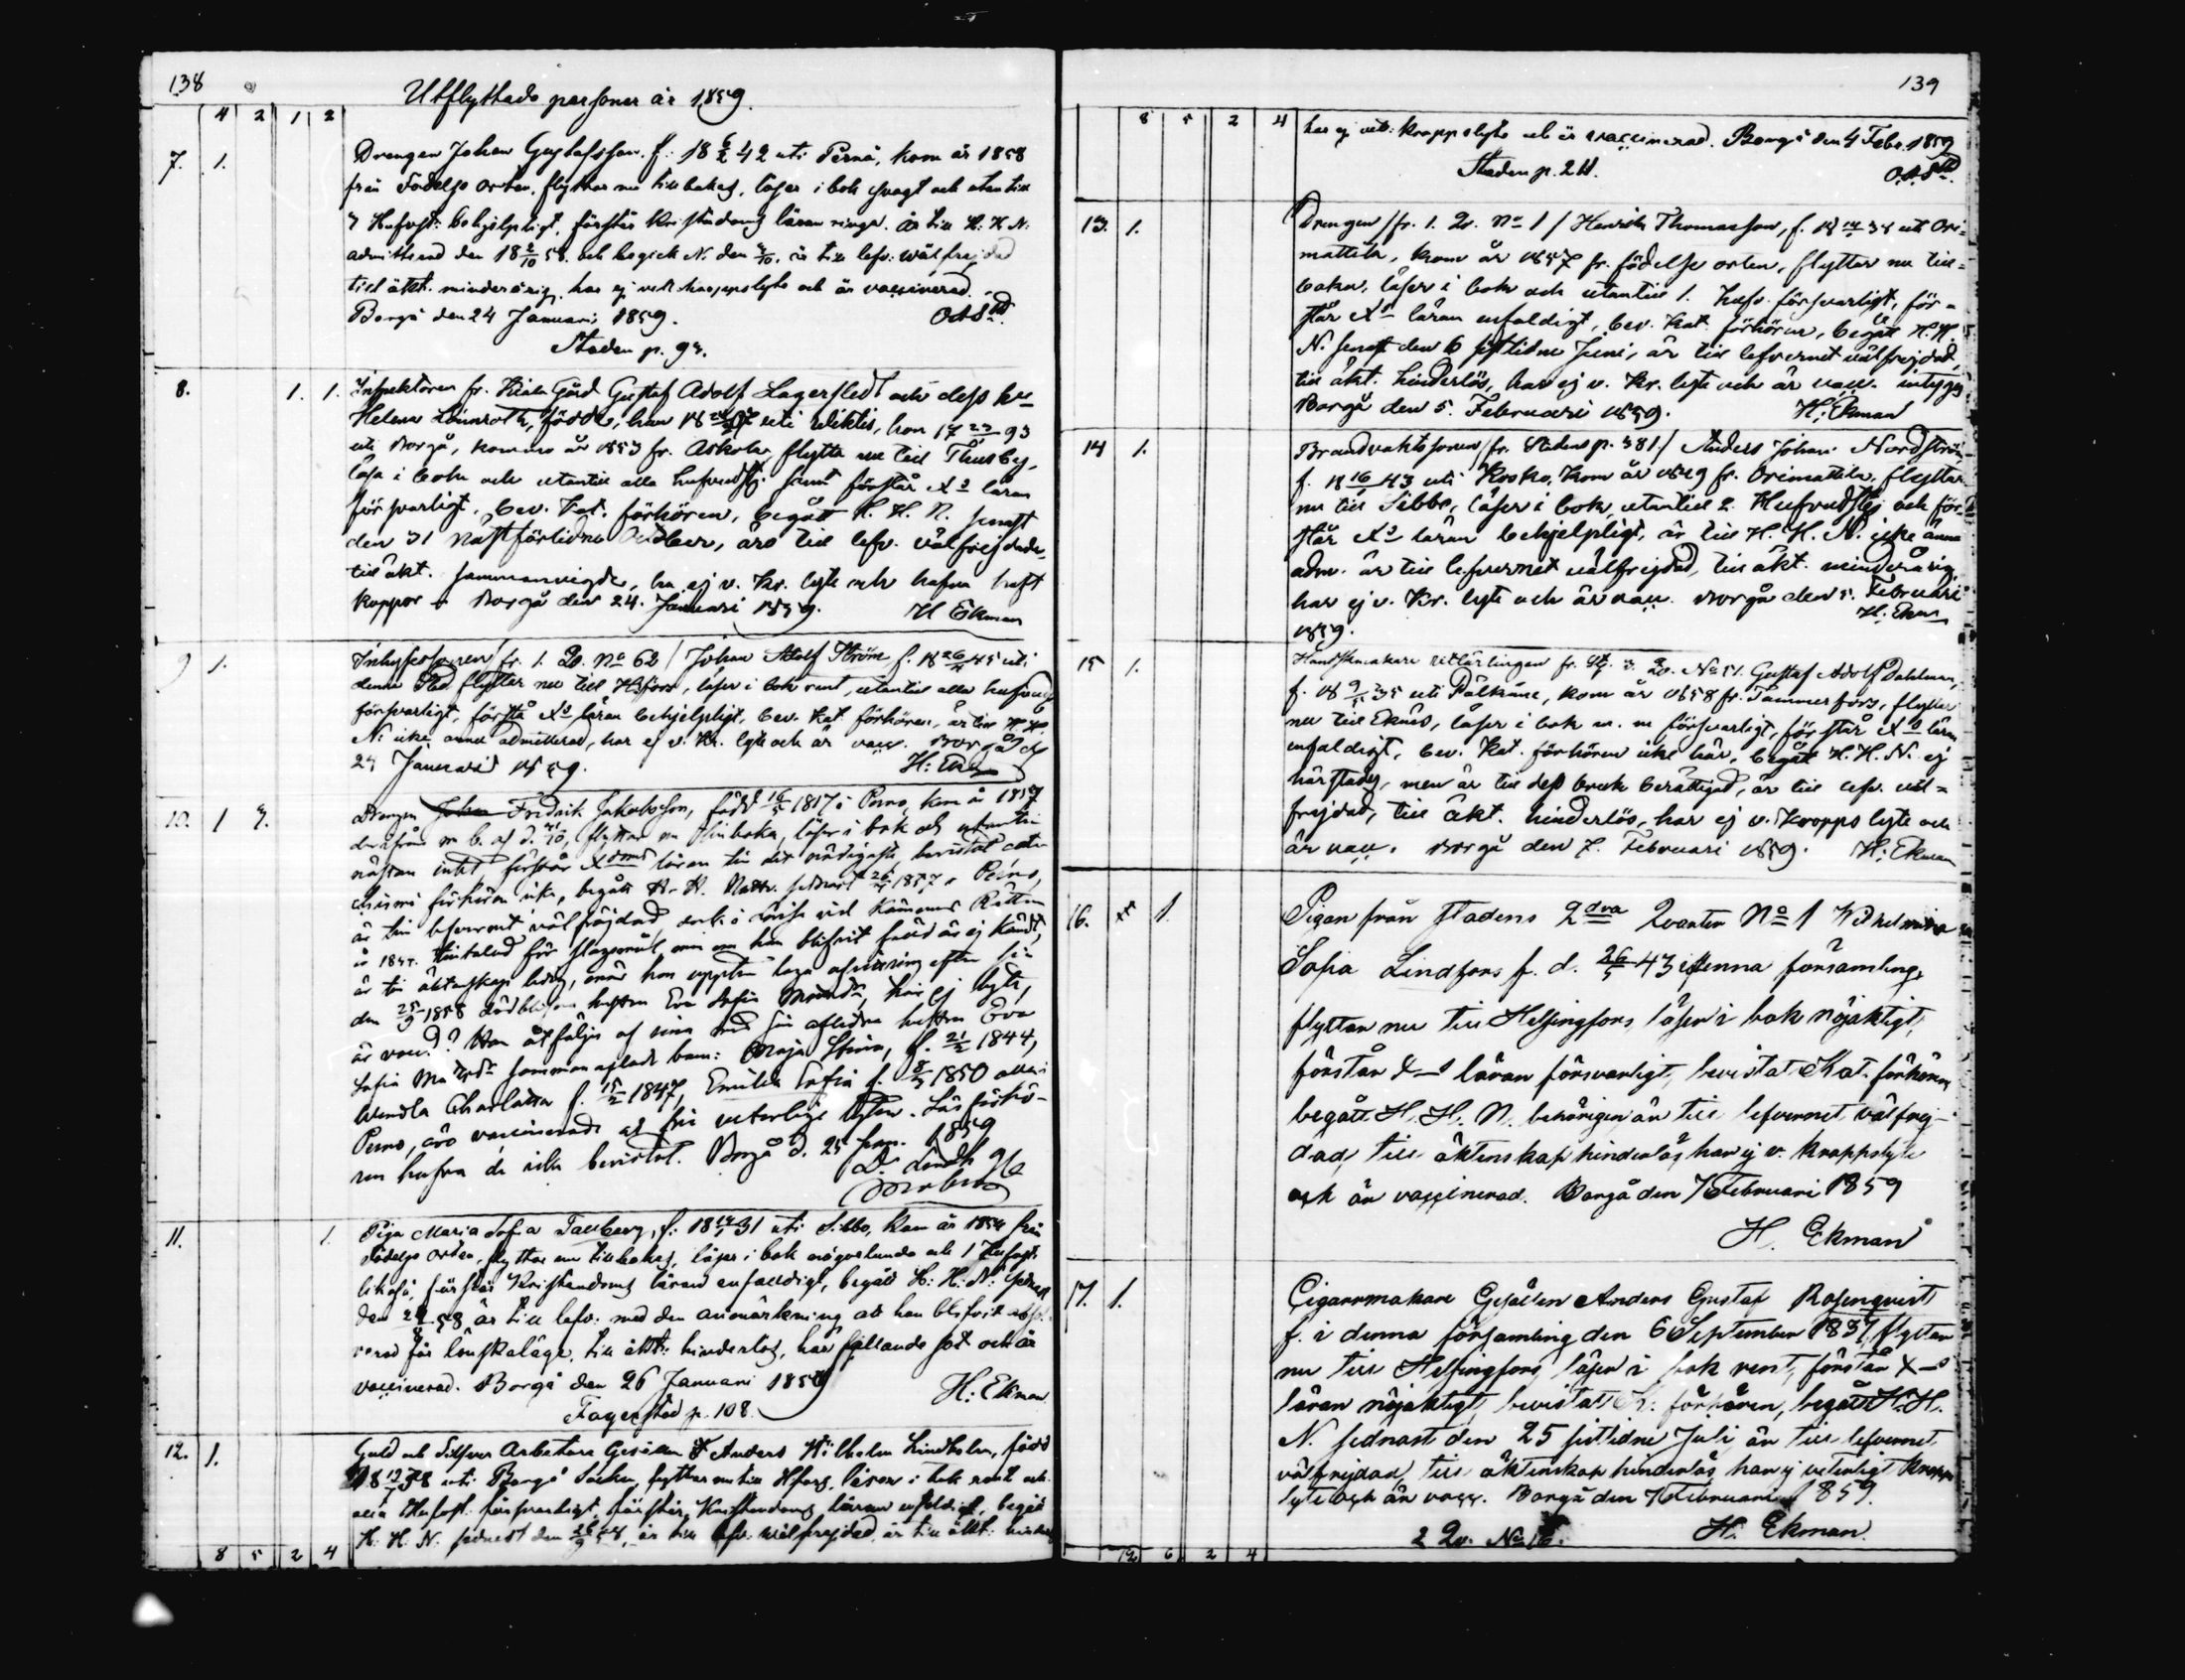 138
Utflyttade personer år 1859.
4 2 1 2
7. 1. Drengen Johan Gustafsson f. 18 6/2 42 uti Pernå, kom år 1858
från Födelse orten, flyttar nu tillbakas, läser i bok svagt och utantill
3 Hufvst: behjelpligt, förstår Kristendoms läran ringa. Är till H. H. N.
admitterad den 18 2/10 58. och begick N. den 3/10, är till lefv: wälfrejdad
till äkt. minderårig, har ej vet. kroppslyte och är vaccinerad.
Borgå den 24 Januari 1859.
Staden p. 93.
8. 1. 1. Inspektoren fr. Kiala Gård Gustaf Adolf Lagerstedt och dess hu
Helena Lönnroth, födde, han uti hon 17 23 93
uti Borgå, kommo år 1853 fr. Askola, flytta nu till Thusby,
läsa i bok och utantill alla hufvudst. samt förstår X läran
försvarligt, bev. Kat. förhören, begått H. H. N. senast
den 31 nästförlidne October, äro till lefv. välfrejdade,
till äkt. sammanvigde, ha ej v. Kr. lyte och hafva haft
koppor. Borgå den 24. Januari 1859. H Ekman
9 1. Inhysessonen /fr. 1. Qv. No 62/ Johan Adolf Ström f. 18 45 uti
denna Stad flyttar nu till H:fors, läser i bok rent, utantill alla hufvud
försvarligt, förstå X läran behjelpligt, bev. Kat. förhören, är till H. H.
N. icke ännu admitterad, har ej v. Kr. lyte och är vacc. Borgå d
24 Januari 1859.
10. 1 3. Drengen Fredrik Jakobsson, född 16/5 1817 i Perno, kom år 1857
derifrån m. b. af d. flyttar nu tillbaka, läser i bok och utantill
nästan intet, förstår X läran till det nödigaste, bevistat cate
chismi förhören icke, begått H. H. Nattv. sednast 1857 i Perno,
är till lefvernet väl fräjdad, enl. vid Kämners Rätten
år 1844. tilltalad för slagsmål, men om han blifvit fälld är ej kändt,
är till äktenskap ledig, när han upptett laga afvittring efter sin
den 25/9 1858 dödblifne hustru Eva Sofia har ej lyte,
är vacc.? Han åtföljes af sina med sin aflidna hustru Eva
Sofia sammanaflade barn: Maja Stina, f. 21/2 1844,
Wendla Charlotta f. 15/2 1847, Emilia Sofia f. 8/3 1850 alla i
Perno, äro vaccinerade och fria veterliga lyten. Läsförhö-
ren hafva de icke bevistat. Borgå d. 25 Jan. 1859
11. 1. Piga Maria Sofia Tallberg, f. 18 31 uti Sibbo, kom år 1854 från
Födelse orten, flyttar nu tillbakas, läser i bok någorlunda och 1 Hufvst.
likaså, förstår Kristendoms läran enfaldigt, begått H: H: N: sednast
den 58 är till lefv: med den anmärkning att hon blifvit absol-
verad för lönskaläge, till äkt: hinderlös, har fallande sot och är
vaccinerad. Borgå den 26 Januari 1859 H: Ekman
Fagersta p. 108.
12. 1. Guld och Silfver Arbetare Gesällen Anders Wilhelm Lindholm, född
18 38 uti Borgå Socken, flyttar nu till H:fors, läser i bok rent och
alla Hufvst. försvarligt, förstår Kristendoms läran enfaldigt, begått
H. H. N. sednast den 26/9 58, är till lefv: wälfrejdad, är till äkt: hinder
8 5 2 4
139
8 5 2 4
har ej vet: kroppslyte och är vaccinerad. Borgå den 4 Febr. 1859
Staden p. 211.
13. 1. Drengen /fr. 1. Qv. No 1/ Henrik Thomasson, f. 18 38 uti Ori=
mattila, kom år 1857 fr. födelse orten, flyttar nu till=
baka, läser i bok och utantill 1. hufv. försvarligt, för=
står X läran enfaldigt, bev. Kat. förhören, begått H. H.
N. senast den 6 sistlidne Juni, är till lefvernet välfrejdad,
till äkt. hinderlös, har ej v. Kr. lyte och är vacc. intygas
Borgå den 5. Februari 1859. H: Ekman
14 1. Brandvaktssonen /fr. Staden p. 381/ Anders Johan Nordström
f. 18 16 43 uti Kosko, kom år 1849 fr. Orimattila, flyttar
nu till Sibbo, läser i bok, utantill 2. Hufvudst. och för=
står X läran behjelpligt, är till H. H. N. icke ännu
adm. är till lefvernet välfrejdad, till äkt. minderårig,
har ej v. Kr. lyte och är vacc. Borgå den 5. Februari
1859. H. Ekman
15 1. Handskmakare fr. 3. Qv. No 51. Gustaf Adolf Dahlman,
f. 18 9 35 uti Pälkäne, kom år 1858 fr. Tammerfors, flyttar
nu till Ekenäs, läser i bok m. m. försvarligt, förstår X läran
enfaldigt, bev. Kat. förhören icke här, begått H. H. N. ej
härstädes, men är till dess bruk berättigad, är till lefv. väl=
frejdad, till äkt. hinderlös, har ej v. Kropps lyte och
är vacc. Borgå den 7. Februari 1859. H: Ekman
16. 1. Pigan från stadens 2dra Qvarter No 1 Wilhelmina
Sofia Lindfors f. d. 26/5 43 i denna församling,
flyttar nu till Helsingfors, läser i bok nöjaktigt,
förstår X läran försvarligt, bevistat Kat. förhören,
begått H. H. N. behörigen är till lefvernet välfrej-
dad, till äktenskap hinderlös, har ej v. kroppslyte
och är vaccinerad. Borgå den 7 Februari 1859
H. Ekman
17. 1. Cigarrmakare Gesällen Anders Gustaf Rosenqvist
f. i denna församling den 6 September 1837, flyttar
nu till Helsingfors, läser i bok rent, förstår X
läran nöjaktigt, bevistat K. förhören, begått H. H.
N. sednast den 25 sistlidne Juli, är till lefvernet
välfrejdad, till äktenskap hinderlös, har ej veterligt kropps
lyte och är vacc. Borgå den 7 Februari 1859.
2 Qv. No 16. H. Ekman.
12 6 2 4